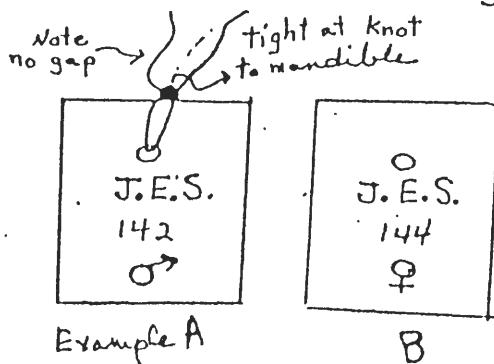 Note
no gap
tight at knot
to mandible
J.E.S.
142
♂
Example A
J.E.S.
144
♀
B